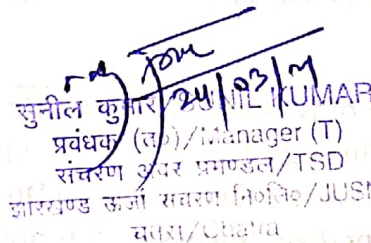 24/03/21
सुनील कुमार/SUNIL KUMAR
प्रवंधक (त०)/Manager (T)
संचरण अवर प्रमण्डल/TSD
झारखण्ड ऊर्जा संचरण नि०लि०/JUSN
चतरा/Chatra